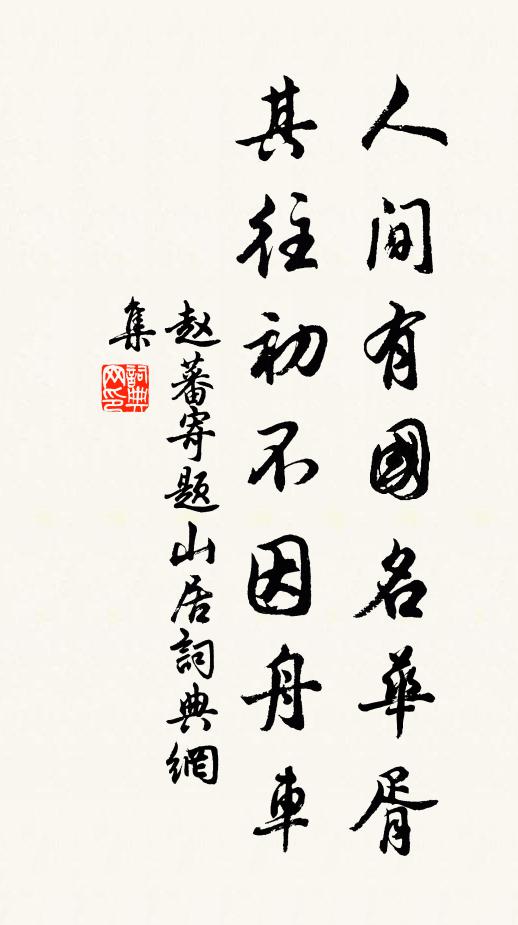 人間有國名華胥
其往初不因舟車
赵蕃寄题山居詞典網
集
詞典
网印